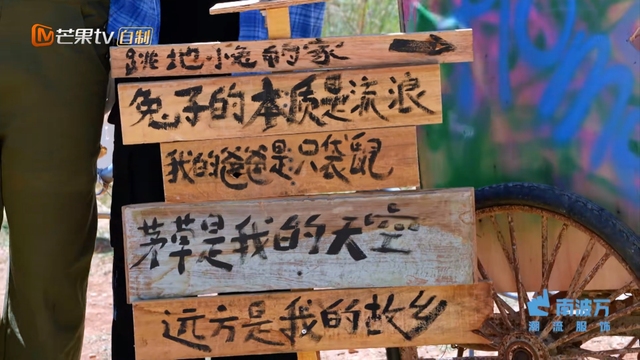 芒果TV 自制
跳地小兔的家
兔子的本质是流浪
我的爸爸是只袋鼠
茅草是我的天空
远方是我的故乡
南波万
潮流服饰